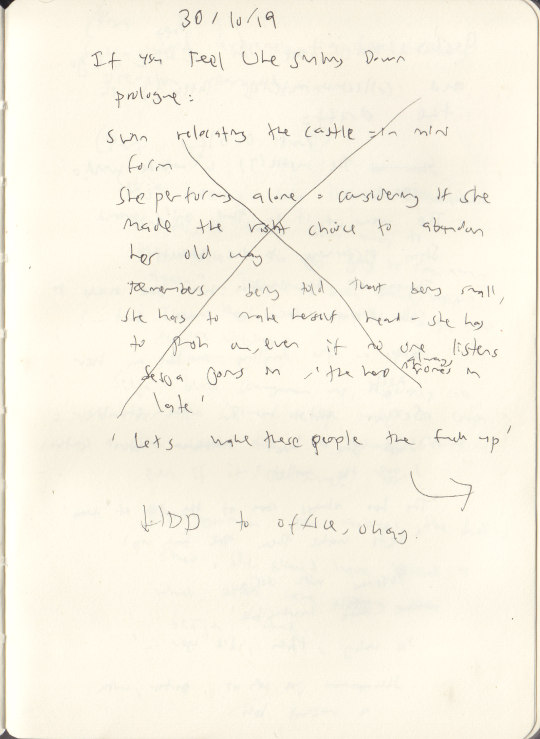 30/10/19
If you Feel Like Sitting Down
prologue:
relocating the castle - in mini
form
She performs alone - considering if she
made the right choice to abandon
her old way
remembers being told that being small,
she has to make herself heard - she has
to push on, even if no one listens
joins in, 'the hero always comes in
late'
'Lets wake these people the fuck up'
HDD to office, okay.